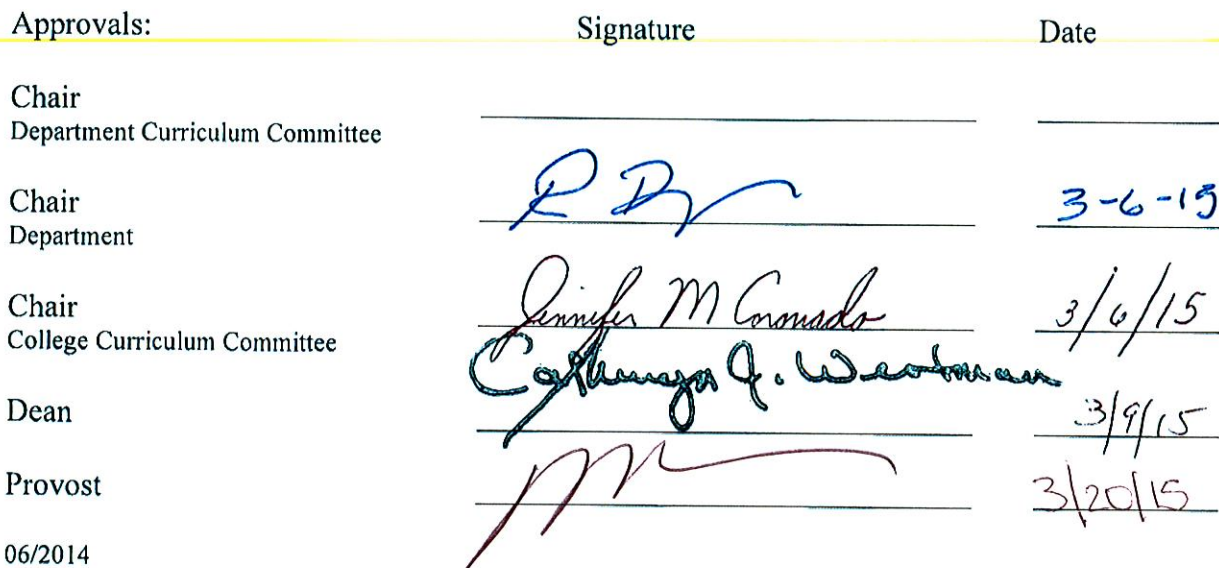 Approvals: Signature Date
Chair
Department Curriculum Committee
Chair
Department
3-6-15
Chair
College Curriculum Committee
Jennifer M Coronado 3/6/15
Dean
J. 3/9/15
Provost
3/20/15
06/2014